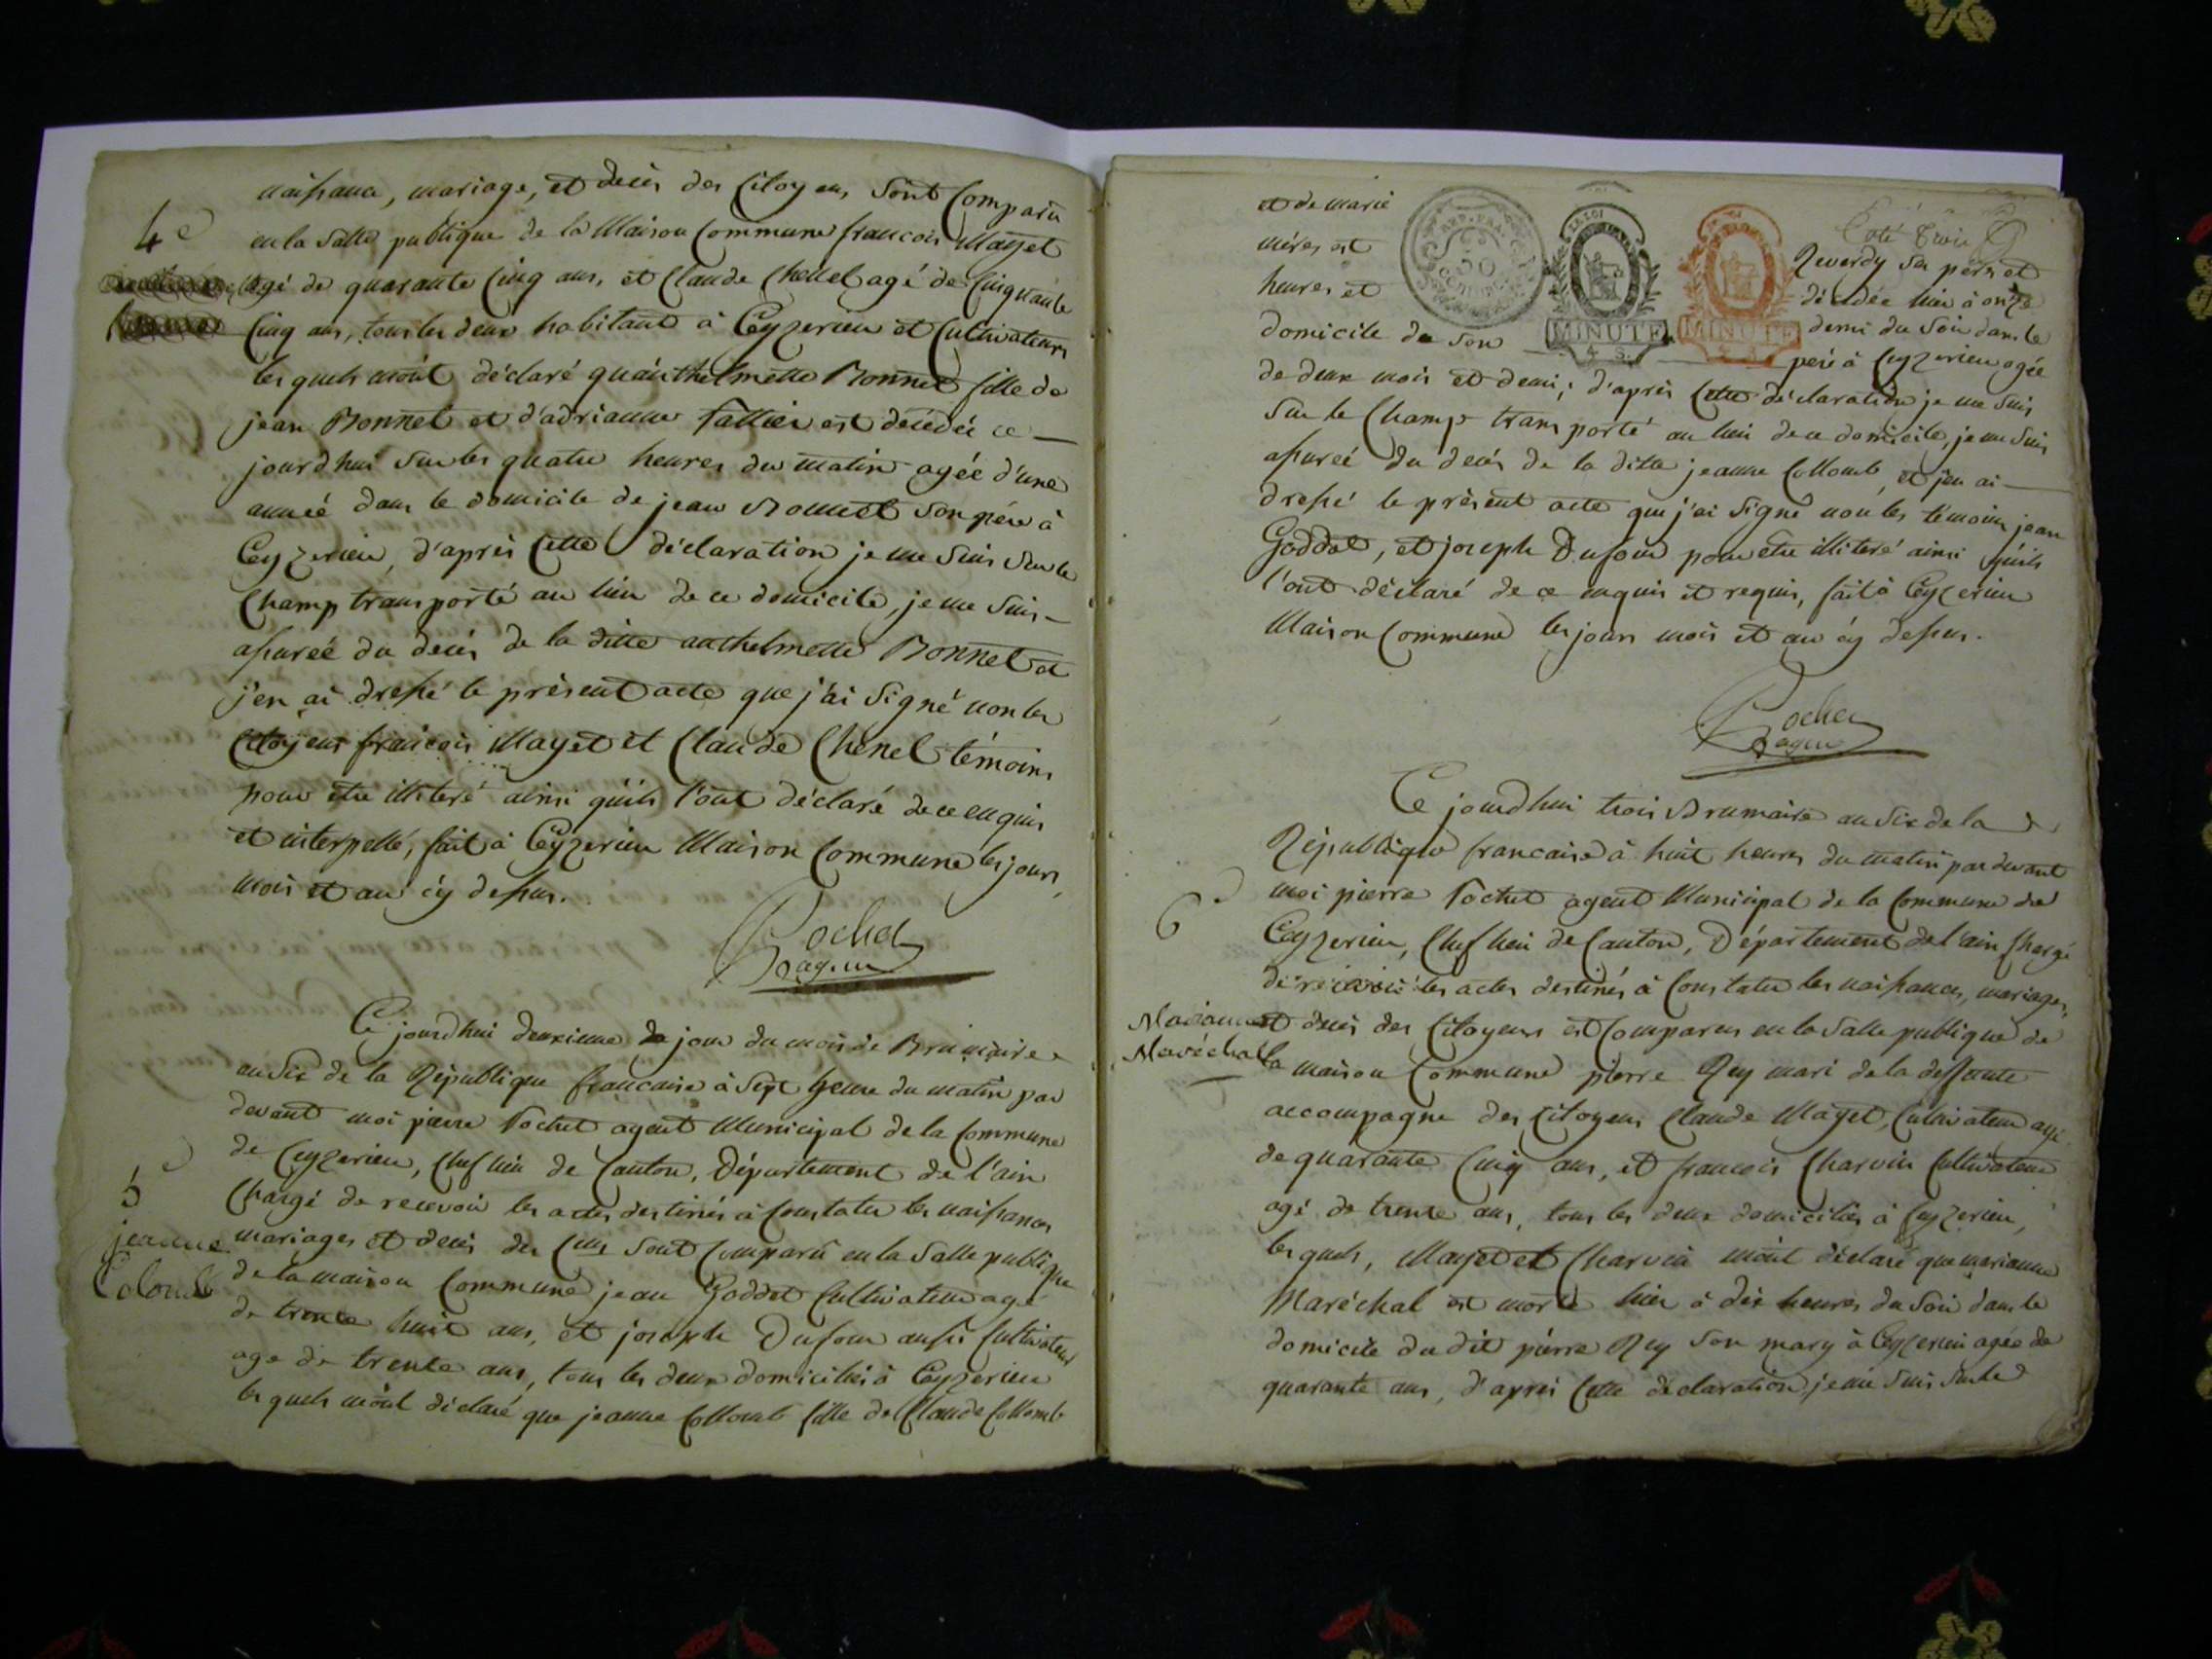 naissance, mariage, et decès des Citoyens sont Comparu
4e
en la salle publique de la Maison Commune francois Mayet
agé de quarante Cinq ans, et Claude Chenel agé de Cinquante
Cinq ans, tous les deux habitant à Ceyzerieu et Cultivateurs
les quels m'ont déclaré qu'anthelmette Bonnet fille de
jean Bonnet et d'adrianne est decédée ce
jourd'hui sur les quatre heures du matin agée d'une
année dans le domicile de jean Bonnet son pére à
Ceyzerieu, d'après Cette déclaration je me suis sur le
Champ transporté au lieu de ce domicile, je me suis
assuréé du decès de la ditte anthelmette Bonnet et
j'en ai dressé le présent acte que j'ai signé non les
Citoyens francois Mayet et Claude Chenel témoins
pour etre illiteré ainsi qu'ils l'ont déclaré de ce enquis
et interpellé, fait à Ceyzerieu Maison Commune les jours,
mois et an cy dessus.
Ce jourd'hui deuxieme jour du mois de Brumaire
an Six de la République francaise à Sept heure du matin par
devant moi pierre Pochet agent Municipal de la Commune
de Ceyzerieu, Chef lieu de Canton, Département de l'ain
5e
Chargé de recevoir les actes destinés à Constater les naissances
jeanne
Colomb
mariages et decès des Cens sont Comparu en la Salle publique
de la maison Commune jean Goddet Cultivateur agé
de trente huit ans, et joseph Dufour aussi Cultivateur
age de trente ans, tous les deux domiciliés à Ceyzerieu
les quels m'ont déclaré que jeanne Collomb fille de Claude Collomb
Coté trois
et de marie Reverdy ses pere et
méres est décédée hier à onze
heures et demi du Soir dans le
domicile de son pere à Ceyzerieu agée
REP. FRA.
50
CENTIMES
LA LOI
MINUTE
MINUTE
de deux mois et demi; d'après Cette déclaration je me suis
Sur le Champ transporté au lieu de ce domicile, je me suis
assureé du decés de la ditte jeanne Collomb et j'en ai
dressé le présent acte que j'ai Signé non les témoins jean
Goddet, et joseph Dufour pour etre illiteré ainsi qu'ils
l'ont déclaré de ce enquis et requis, fait à Ceyzerieu
Maison Commune les jours mois et an cy dessus.
Ce jourd'hui trois Brumaire an Six de la
République francaise à huit heures du matin par devant
6e
moi pierre Pochet agent Municipal de la Commune de
Ceyzerieu, Chef lieu de Canton, Département de l'ain Chargé
de recevoir les actes destinés à Constater les naissances, mariages,
Marianne
Maréchal
et decès des Citoyens est Comparus en la Salle publique de
la maison Commune pierre Rey mari de la deffunte
accompagne des Citoyens Claude Mayet, Cultivateur agé
de quarante Cinq ans, et francois Charvin Cultivateur
agé de trente ans, tous les deux domiciliés à Ceyzerieu,
les quels, Mayet et Charvin m'ont déclaré que marianne
Maréchal est morte hier à dix heures du Soir dans le
domicile du dit piérre Rey Son mary à Ceyzerieu agée de
quarante ans, d'aprés Cette déclaration je me suis sur le